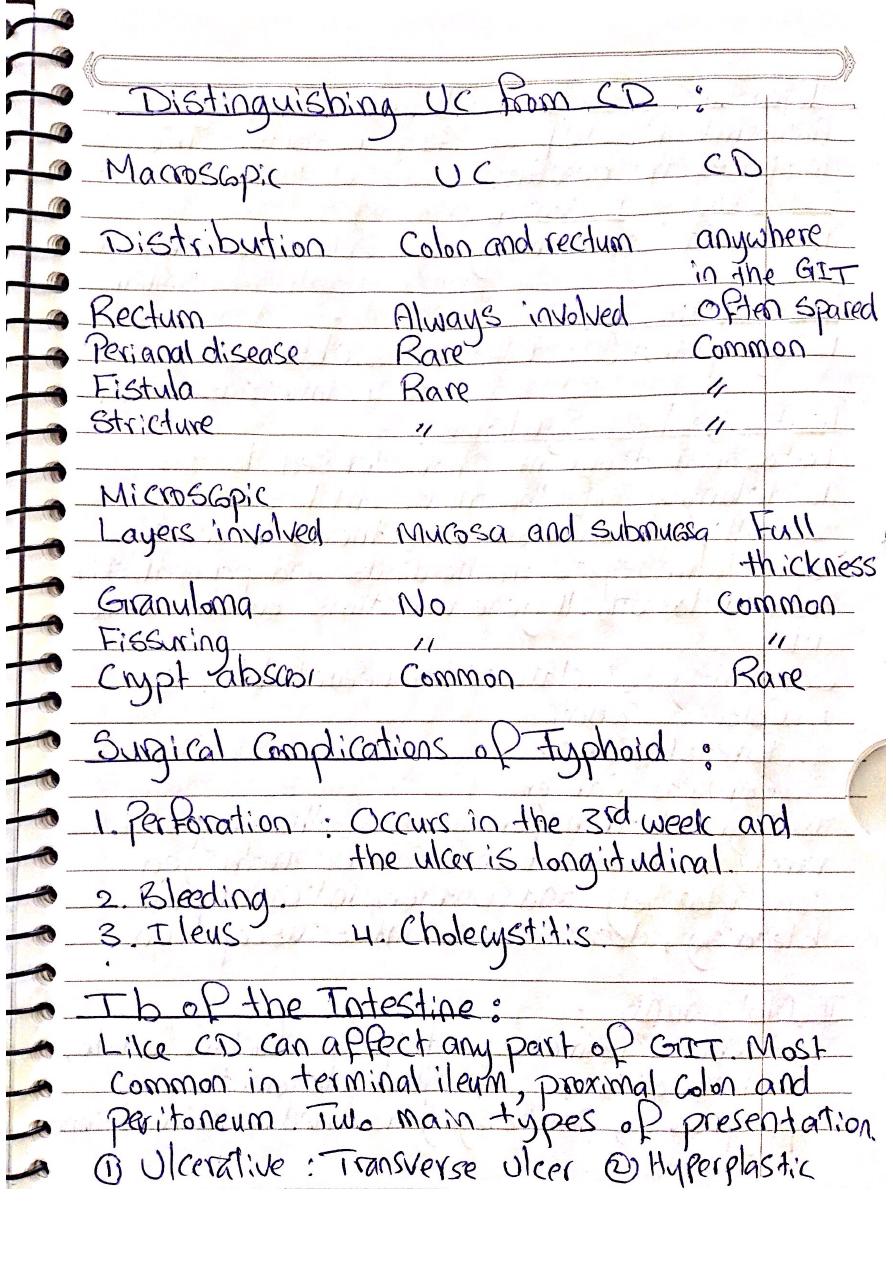 Distinguishing UC from CD :
Macroscopic UC CD
Distribution Colon and rectum anywhere
in the GIT
Rectum Always involved Often spared
Perianal disease Rare Common
Fistula Rare "
Stricture " "
Microscopic
Layers involved Mucosa and submucosa Full
thickness
Granuloma No Common
Fissuring " "
Crypt Common Rare
Surgical Complications of Typhoid :
1. Perforation : Occurs in the 3rd week and
the ulcer is longitudinal.
2. Bleeding.
3. Ileus 4. Cholecystitis.
Tb of the Intestine :
Like CD can affect any part of GIT. Most
common in terminal ileum, proximal colon and
peritoneum. Two main types of presentation.
① Ulcerative : Transverse ulcer ② Hyperplastic